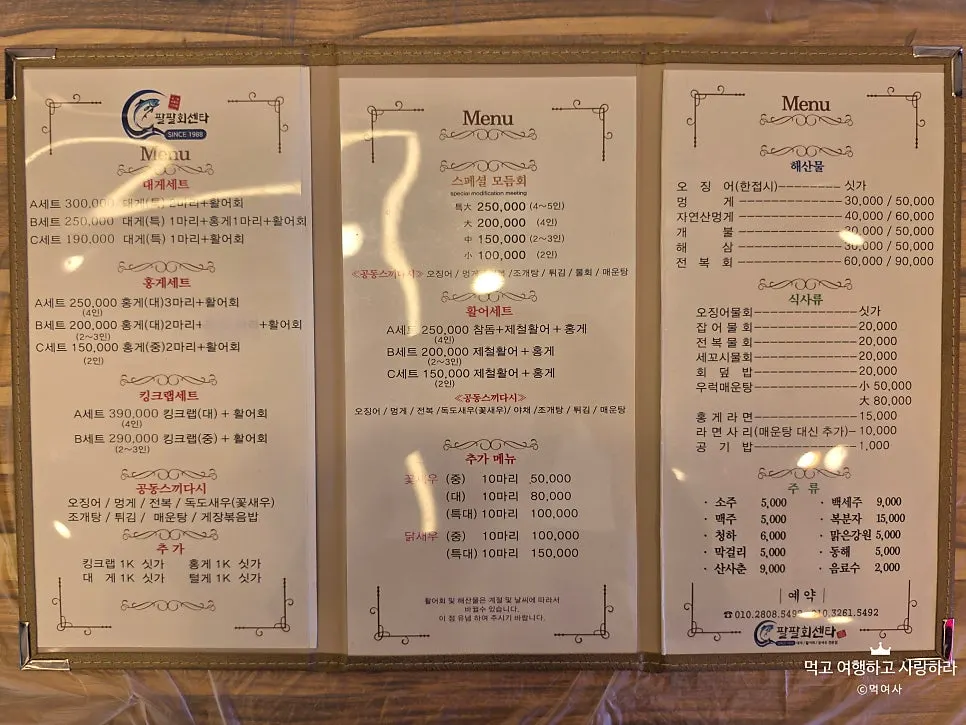 팔팔회센타
SINCE 1988
Menu
대게세트
A세트 300,000 대게(특) 2마리+활어회
B세트 250,000 대게(특) 1마리+홍게1마리+활어회
C세트 190,000 대게(특) 1마리+활어회
홍게세트
A세트 250,000 홍게(대)3마리+활어회
(4인)
B세트 200,000 홍게(대)2마리+ +활어회
(2~3인)
C세트 150,000 홍게(중)2마리+활어회
(2인)
킹크랩세트
A세트 390,000 킹크랩(대) + 활어회
(4인)
B세트 290,000 킹크랩(중) + 활어회
(2~3인)
공동스끼다시
오징어 / 멍게 / 전복 / 독도새우(꽃새우)
조개탕 / 튀김 / 매운탕 / 게장볶음밥
추 가
킹크랩 1K 싯가 홍게 1K 싯가
대 게 1K 싯가 털게 1K 싯가
Menu
스페셜 모듬회
special modification meeting
特大 250,000 (4~5인)
大 200,000 (4인)
中 150,000 (2~3인)
小 100,000 (2인)
≪공동스끼다시≫ 오징어 / 멍게 / /조개탕 / 튀김 / 물회 / 매운탕
활어세트
A세트 250,000 참돔+제철활어 + 홍게
(4인)
B세트 200,000 제철활어 + 홍게
(2~3인)
C세트 150,000 제철활어 + 홍게
(2인)
≪공동스끼다시≫
오징어 / 멍게 / 전복 /독도새우(꽃새우)/ 야채 /조개탕 / 튀김 / 매운탕
추가 메뉴
꽃새우 (중) 10마리 50,000
(대) 10마리 80,000
(특대) 10마리 100,000
닭새우 (중) 10마리 100,000
(특대) 10마리 150,000
활어회 및 해산물은 계절 및 날씨에 따라서
바뀔수 있습니다.
이 점 유념 하여 주시기 바랍니다.
Menu
해산물
오 징 어(한접시)-------- 싯가
멍 게 ---------- 30,000 / 50,000
자연산멍게 ---------- 40,000 / 60,000
개 불 ---------- 30,000 / 50,000
해 삼 ---------- 30,000 / 50,000
전 복 회 ---------- 60,000 / 90,000
식사류
오징어물회------------싯가
잡 어 물 회------------20,000
전 복 물 회------------20,000
세꼬시물회------------20,000
회 덮 밥------------20,000
우럭매운탕------------小 50,000
大 80,000
홍 게 라 면------------15,000
라 면 사 리(매운탕 대신 추가)-- 10,000
공 기 밥------------1,000
주 류
· 소주 5,000 · 백세주 9,000
· 맥주 5,000 · 복분자 15,000
· 청하 6,000 · 맑은강원 5,000
· 막걸리 5,000 · 동해 5,000
· 산사춘 9,000 · 음료수 2,000
| 예 약 |
☎010.2808.5492 010.3261.5492
팔팔회센타
먹고 여행하고 사랑하라
ⓒ먹여사